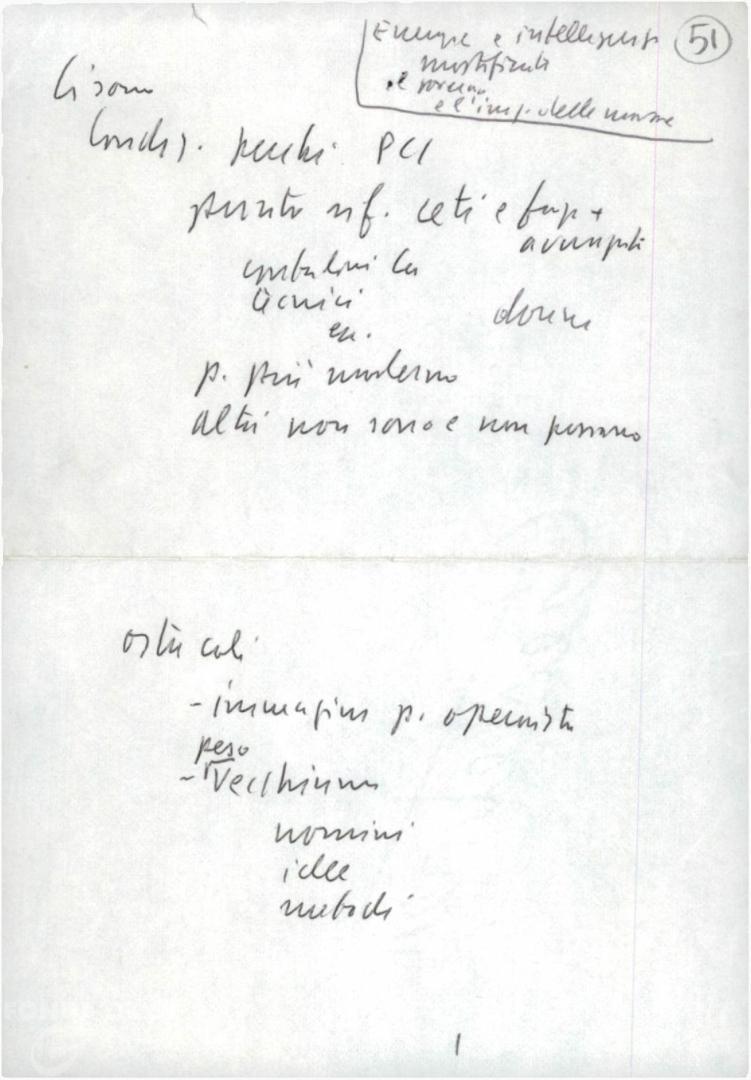 51
Energie e intelligenze
mortificate
e
e l'imp. delle masse
Ci sono
Condiz. perché PCI
punto rif. ceti e figure +
avanzati
capitalisti
tecnici donne
ecc.
p. più moderno
altri non sono e non possono
ostacoli
- immagine p. operaista
peso
- Vecchiume
uomini
idee
metodi
1